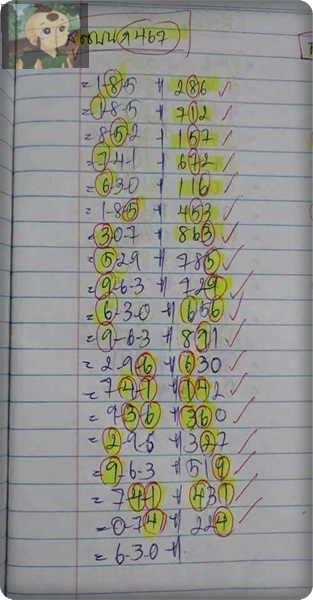 สูตรบน 9467
= 1-8-5 # 286 ✓
= 1-8-5 # 712 ✓
= 8-5-2 # 157 ✓
= 7-4-1 # 672 ✓
= 6-3-0 # 116 ✓
= 1-8-5 # 453 ✓
= 3-0-7 # 863 ✓
= 5-2-9 # 785 ✓
= 9-6-3 # 729 ✓
= 6-3-0 # 656 ✓
= 9-6-3 # 891 ✓
= 2-9-6 # 630 ✓
= 7-4-1 # 142 ✓
= 9-3-6 # 360 ✓
= 2-9-5 # 327 ✓
= 9-6-3 # 519 ✓
= 7-4-1 # 431 ✓
= 0-7-4 # 224 ✓
= 6-3-0 #